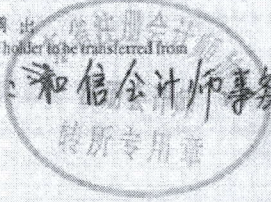 出
holder to be transferred from
和信会计师事务
注册会计
转所专用章